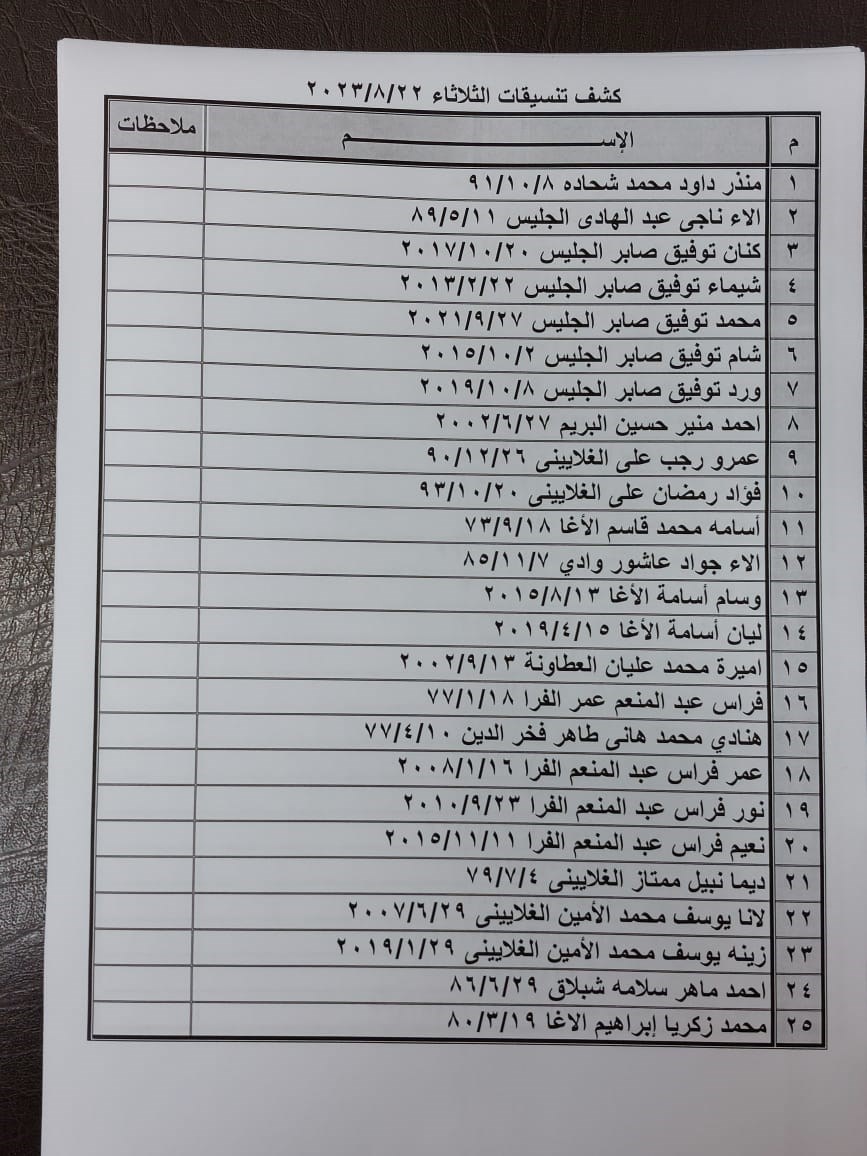 كشف تنسيقات الثلاثاء ٢٠٢٣/٨/٢٢
م الإســــــــــم ملاحظات
١ منذر داود محمد شحاده ٩١/١٠/٨
٢ الاء ناجى عبد الهادى الجليس ٨٩/٥/١١
٣ كنان توفيق صابر الجليس ٢٠١٧/١٠/٢٠
٤ شيماء توفيق صابر الجليس ٢٠١٣/٢/٢٢
٥ محمد توفيق صابر الجليس ٢٠٢١/٩/٢٧
٦ شام توفيق صابر الجليس ٢٠١٥/١٠/٢
٧ ورد توفيق صابر الجليس ٢٠١٩/١٠/٨
٨ احمد منير حسين البريم ٢٠٠٢/٦/٢٧
٩ عمرو رجب على الغلايينى ٩٠/١٢/٢٦
١٠ فؤاد رمضان على الغلايينى ٩٣/١٠/٢٠
١١ أسامه محمد قاسم الأغا ٧٣/٩/١٨
١٢ الاء جواد عاشور وادي ٨٥/١١/٧
١٣ وسام أسامة الأغا ٢٠١٥/٨/١٣
١٤ ليان أسامة الأغا ٢٠١٩/٤/١٥
١٥ اميرة محمد عليان العطاونة ٢٠٠٢/٩/١٣
١٦ فراس عبد المنعم عمر الفرا ٧٧/١/١٨
١٧ هنادي محمد هانى طاهر فخر الدين ٧٧/٤/١٠
١٨ عمر فراس عبد المنعم الفرا ٢٠٠٨/١/١٦
١٩ نور فراس عبد المنعم الفرا ٢٠١٠/٩/٢٣
٢٠ نعيم فراس عبد المنعم الفرا ٢٠١٥/١١/١١
٢١ ديما نبيل ممتاز الغلايينى ٧٩/٧/٤
٢٢ لانا يوسف محمد الأمين الغلايينى ٢٠٠٧/٦/٢٩
٢٣ زينه يوسف محمد الأمين الغلايينى ٢٠١٩/١/٢٩
٢٤ احمد ماهر سلامه شبلاق ٨٦/٦/٢٩
٢٥ محمد زكريا إبراهيم الاغا ٨٠/٣/١٩